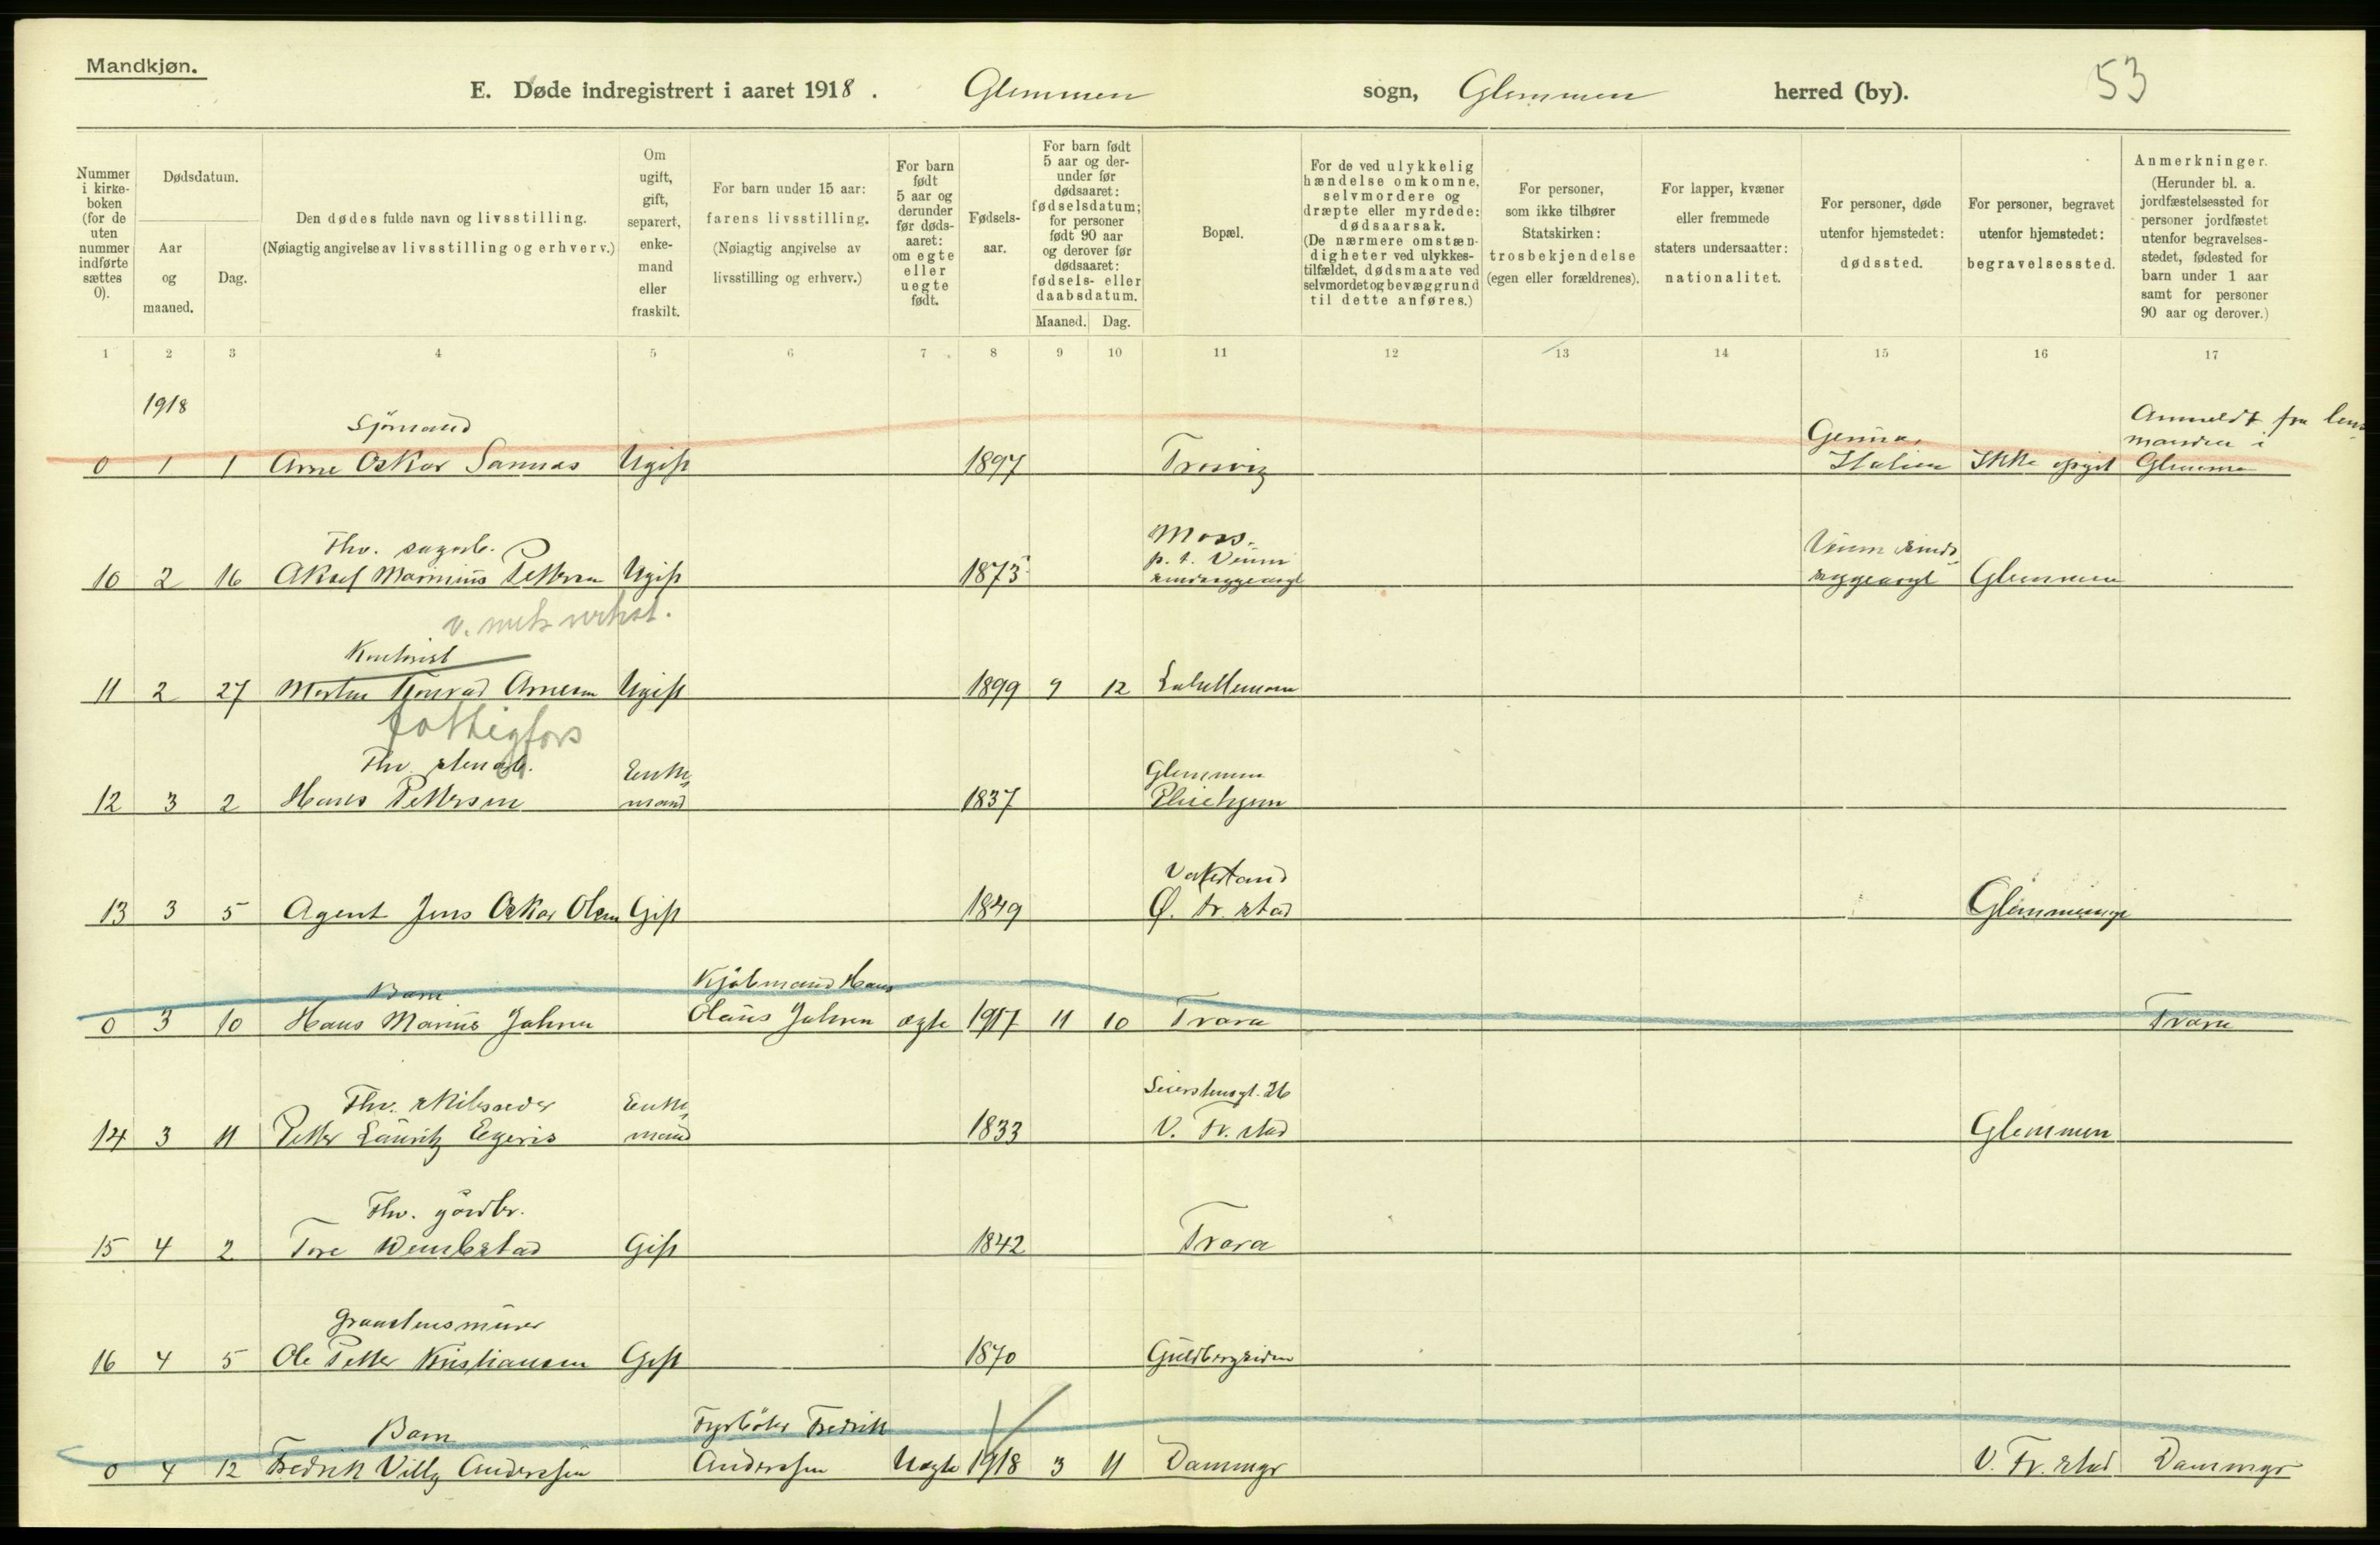 Mandkjøn.
E. Døde indregistrert i aaret 1918. Glemmen sogn, Glemmen herred (by). 53
Nummer i kirkeboken (for de uten nummer indførte sættes 0).
Dødsdatum.
Aar og maaned.
Dag.
Den dødes fulde navn og livsstilling.
(Nøiagtig angivelse av livsstilling og erhverv.)
Om ugift, gift, separert, enkemand eller fraskilt.
For barn under 15 aar: farens livsstilling. (Nøiagtig angivelse av livsstilling og erhverv.)
For barn født 5 aar og derunder før dødsaaret: om egte eller uegte født.
Fødselsaar.
For barn født 5 aar og derunder før dødsaaret: fødselsdatum; for personer født 90 aar og derover før dødsaaret: fødsels- eller daabsdatum.
Maaned. Dag.
Bopæl.
For de ved ulykkelig hændelse omkomne, selvmordere og dræpte eller myrdede: dødsaarsak. (De nærmere omstændigheter ved ulykkestilfældet, dødsmaate ved selvmordet og bevæggrund til dette anføres.)
For personer, som ikke tilhører Statskirken: trosbekjendelse (egen eller forældrenes).
For lapper, kvæner eller fremmede staters undersaatter: nationalitet.
For personer, døde utenfor hjemstedet: dødssted.
For personer, begravet utenfor hjemstedet: begravelsessted.
Anmerkninger. (Herunder bl. a. jordfæstelsessted for personer jordfæstet utenfor begravelsesstedet, fødested for barn under 1 aar samt for personer 90 aar og derover.)
1 2 3 4 5 6 7 8 9 10 11 12 13 14 15 16 17
1918
Sjömand Genua, Anmeldt fra lens
manden i
0 1 1 Arne Oskar Ugift 1897 Trosvig Italien Ikke opgit Glemmen
Fhv. sagarb. Moss.
p. t. Veum Veum sinds
10 2 16 Aksel Marinius Pettersen Ugift 1873 sindssygeasyl sygeasyl Glemmen
v. mek verkst.
Kontorist
11 2 27 Morten Konrad Arnesen Ugift 1899 9 12
fattigfors
Fhv. stenarb. Enke Glemmen
12 3 2 Hans Pettersen mand 1837 Pleiehjem
Vaterland
13 3 5 Agent Jens Oskar Olsen Gift 1849 Ø. Fr.stad Glemminge
Barn Kjöbmand Hans
0 3 10 Hans Marius Jahren Olaus Jahren ægte 1917 11 10 Trara Trara
Fhv. skibsreder Enke Seierstensgt. 26
14 3 11 Petter Lauritz Egeris mand 1833 V. Fr.stad Glemmen
Fhv. gårdbr.
15 4 2 Tore Gift 1842 Trara
Graastensmurer
16 4 5 Ole Petter Kristiansen Gift 1870 Guldbergsiden
Barn Fyrböter Fredrik
0 4 12 Fredrik Villy Anderssen Anderssen Uægte 1918 3 11 Dammyr V. Fr.stad Dammyr